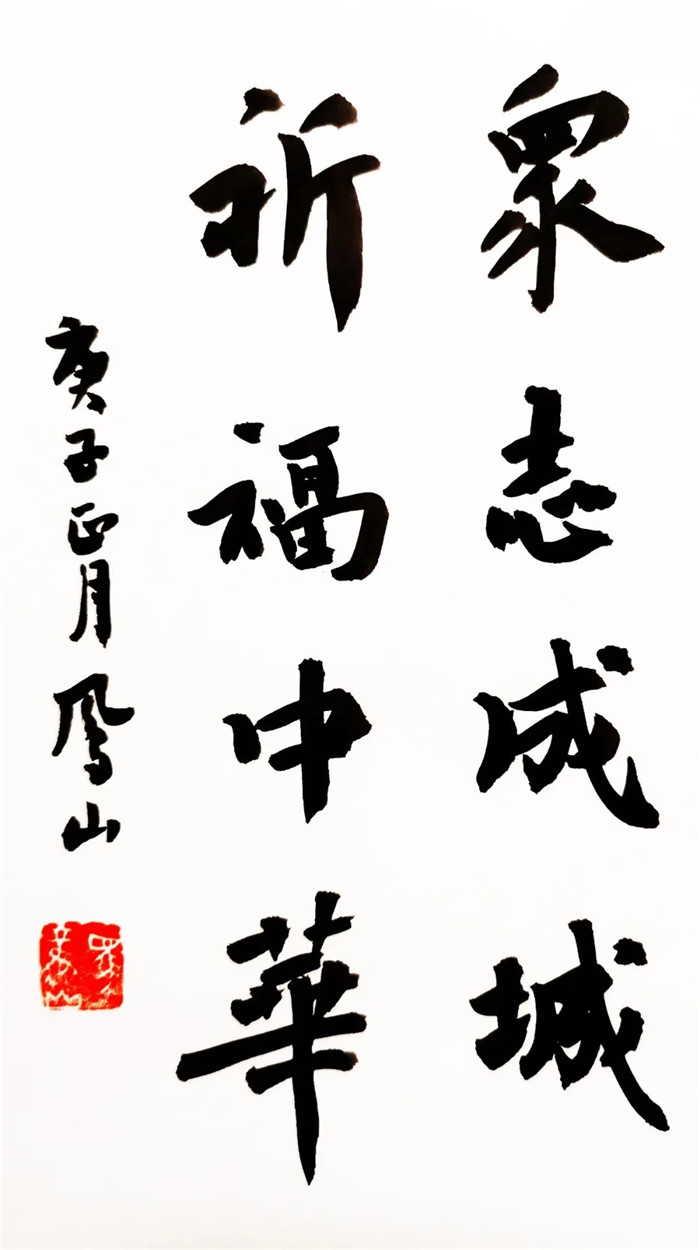 眾志成城
祈福中華
庚子正月鳳山